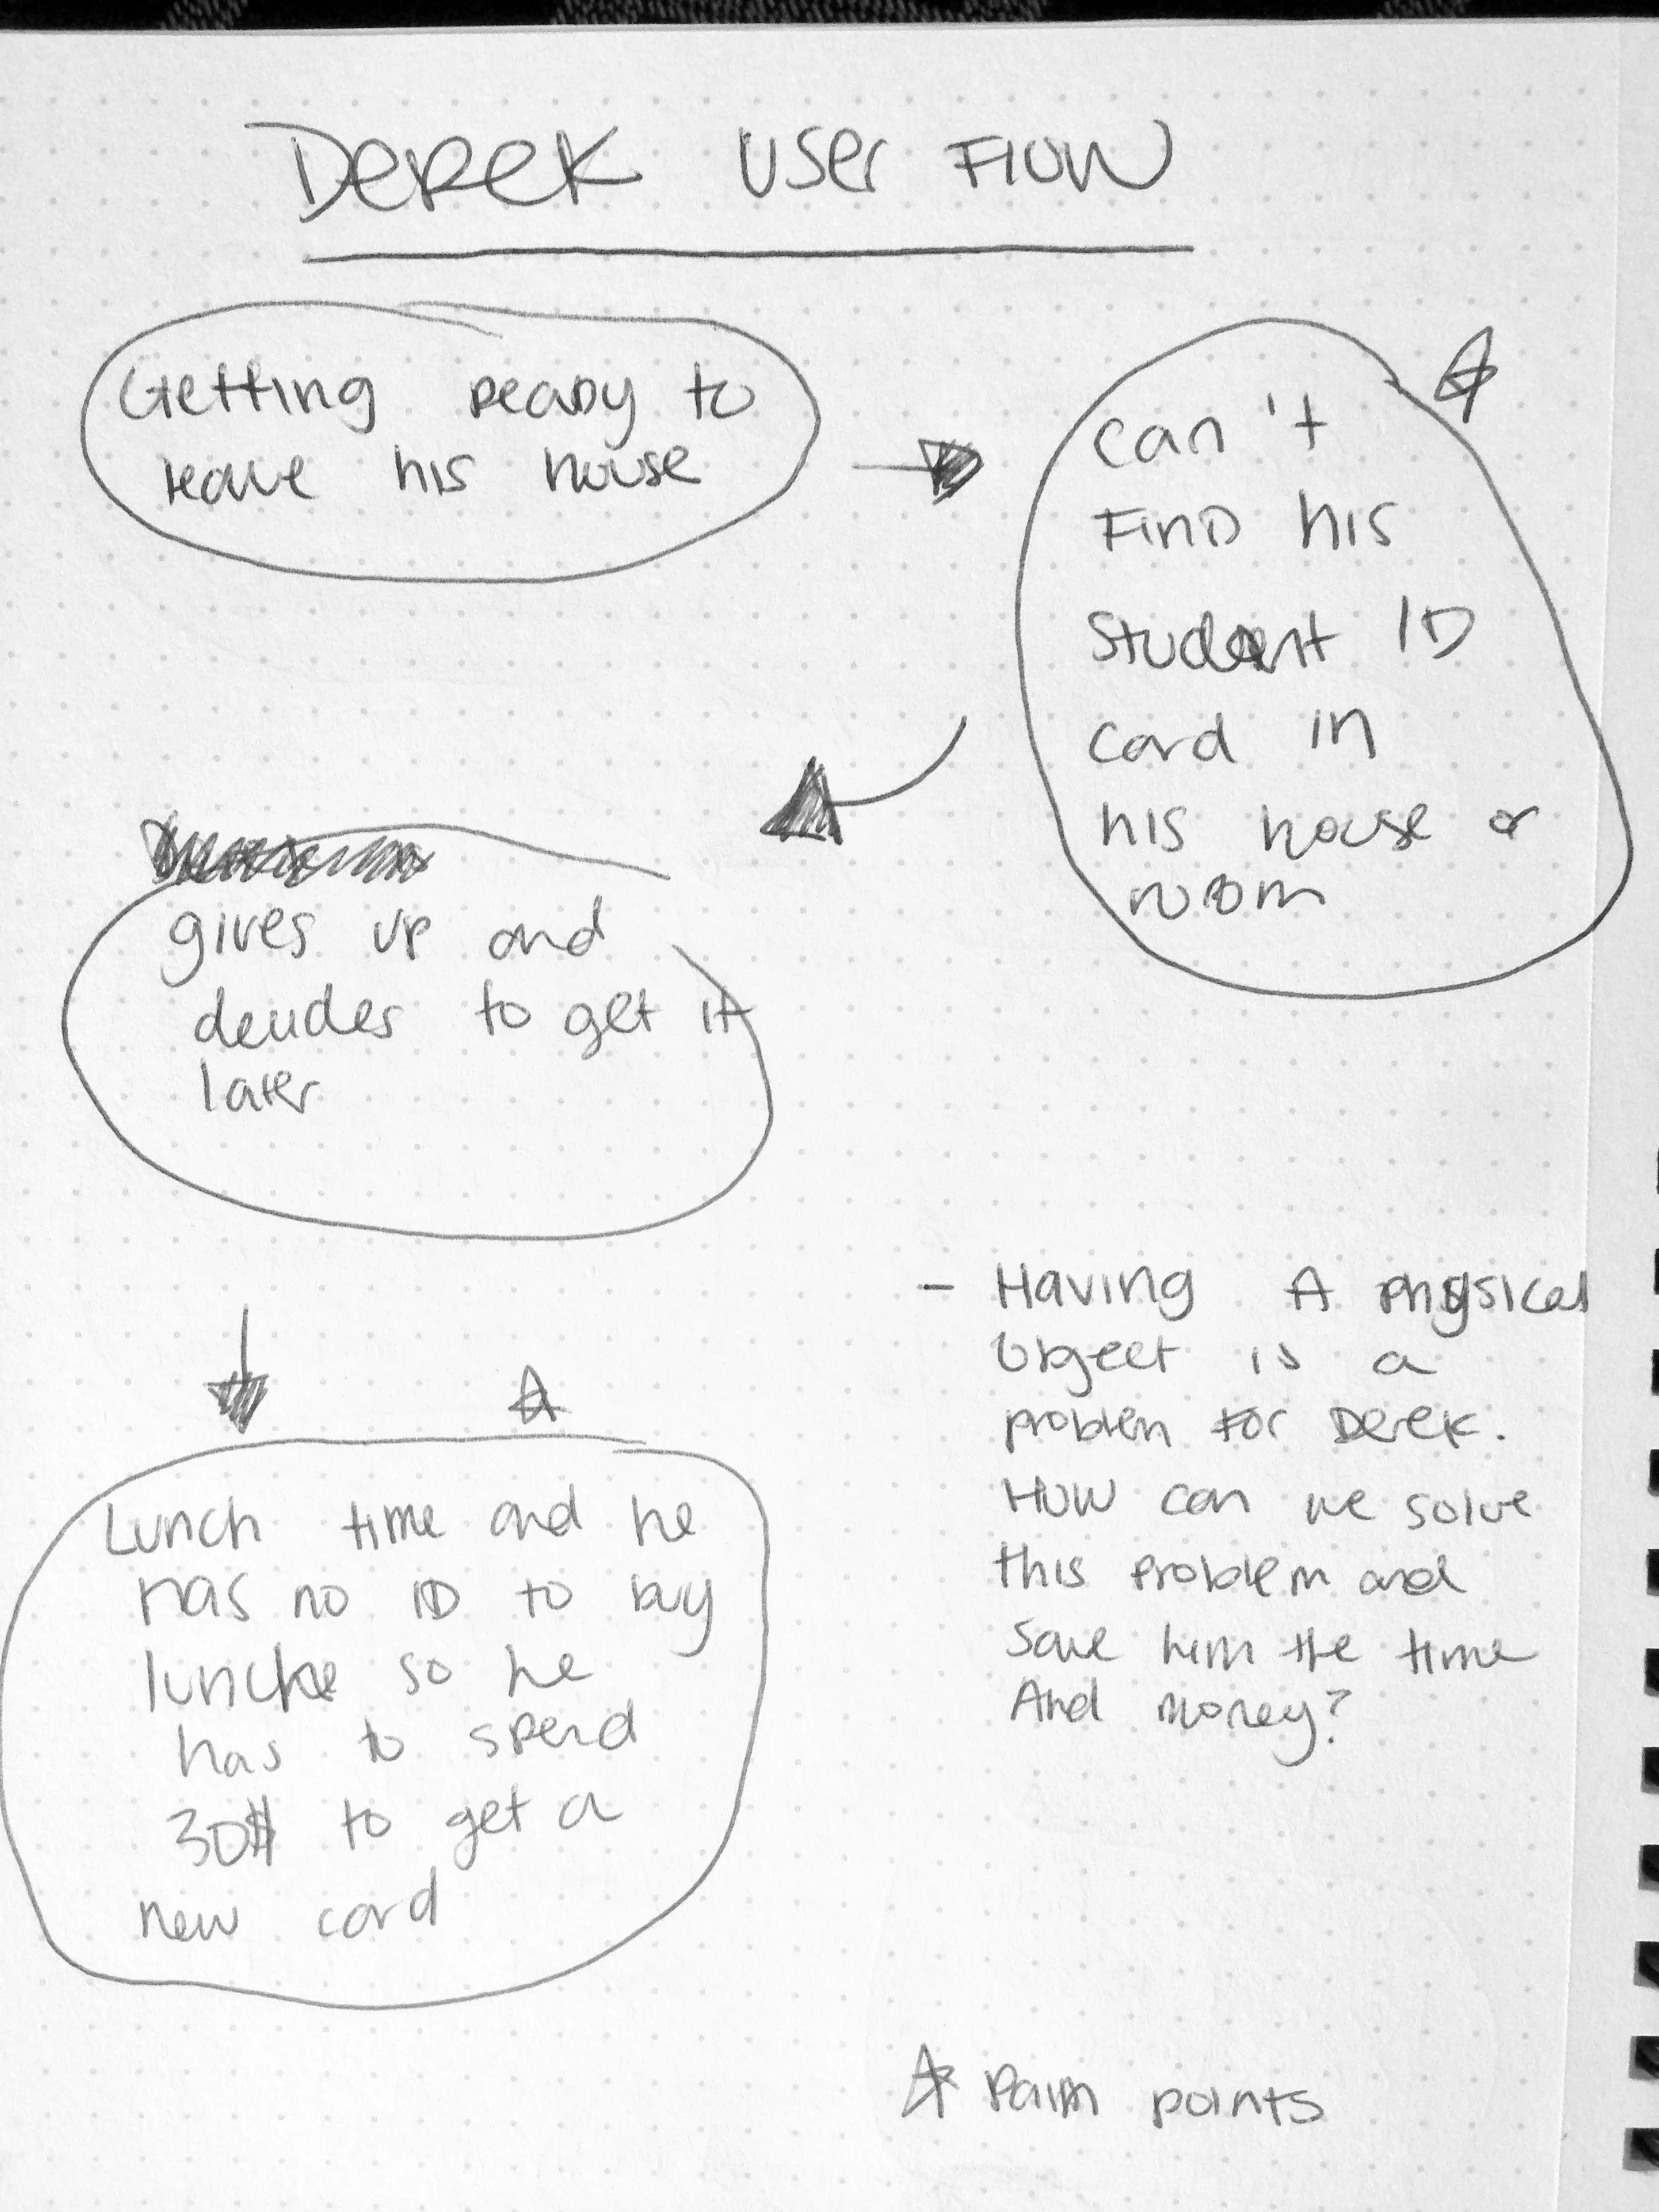 Derek User Flow
Getting ready to
leave his house
can't
Find his
Student ID
card in
his house or
room
gives up and
decides to get it
later
Lunch time and he
has no ID to buy
lunche so he
has to spend
30$ to get a
new card
- Having A physical
object is a
problem for Derek.
How can we solve
this problem and
save him the time
And money?
☆ Pain points